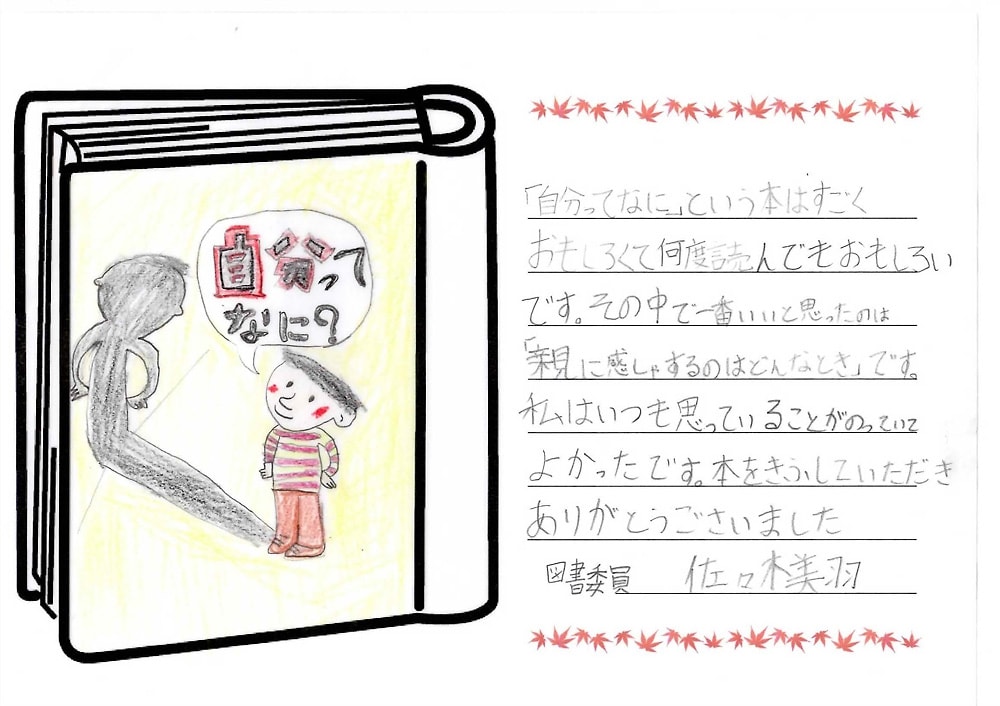 自分って
なに?
「自分ってなに」という本はすごく
おもしろくて何度読んでもおもしろい
です。その中で一番いいと思ったのは
「親に感しゃするのはどんなとき」です。
私はいつも思っていることがのっていて
よかったです。本をきふしていただき
ありがとうございました
図書委員 佐々木美羽